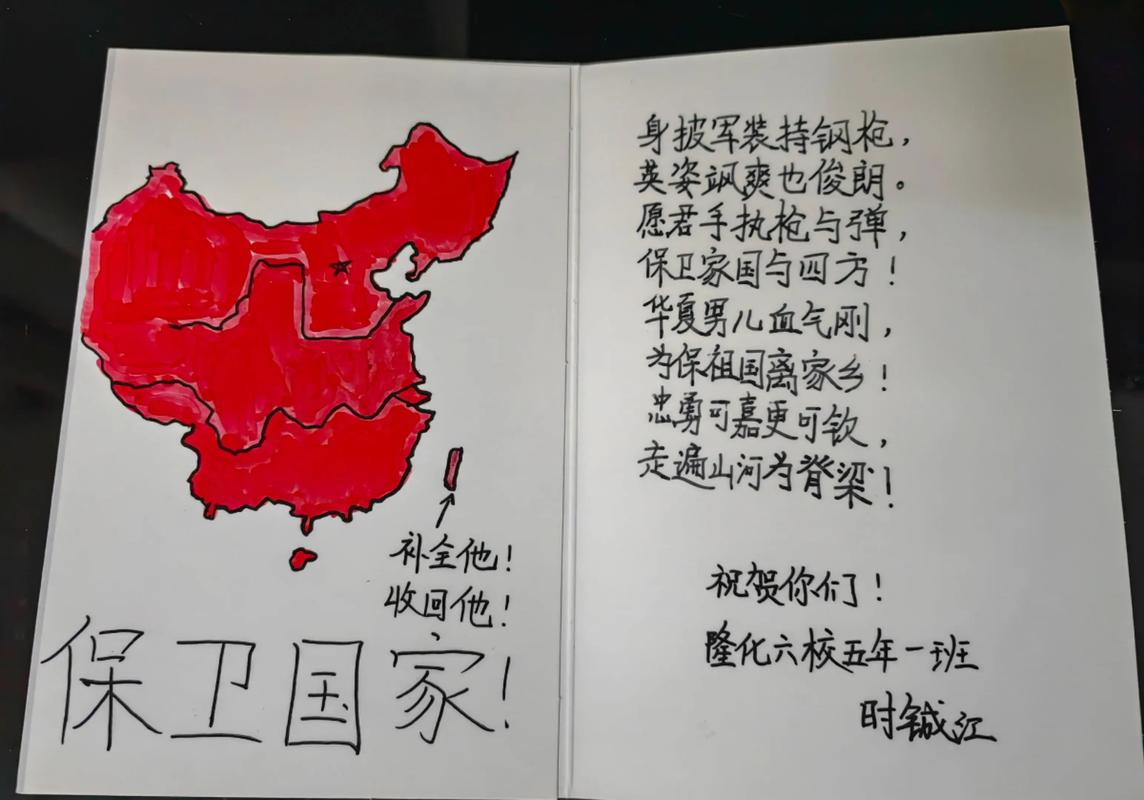 补全他!
收回他!
保卫国家!
身披军装持钢枪,
英姿飒爽也俊朗。
愿君手执枪与弹,
保卫家国与四方!
华夏男儿血气刚,
为保祖国离家乡!
忠勇可嘉更可钦,
走遍山河为脊梁!
祝贺你们!
隆化六校五年一班
时铖江